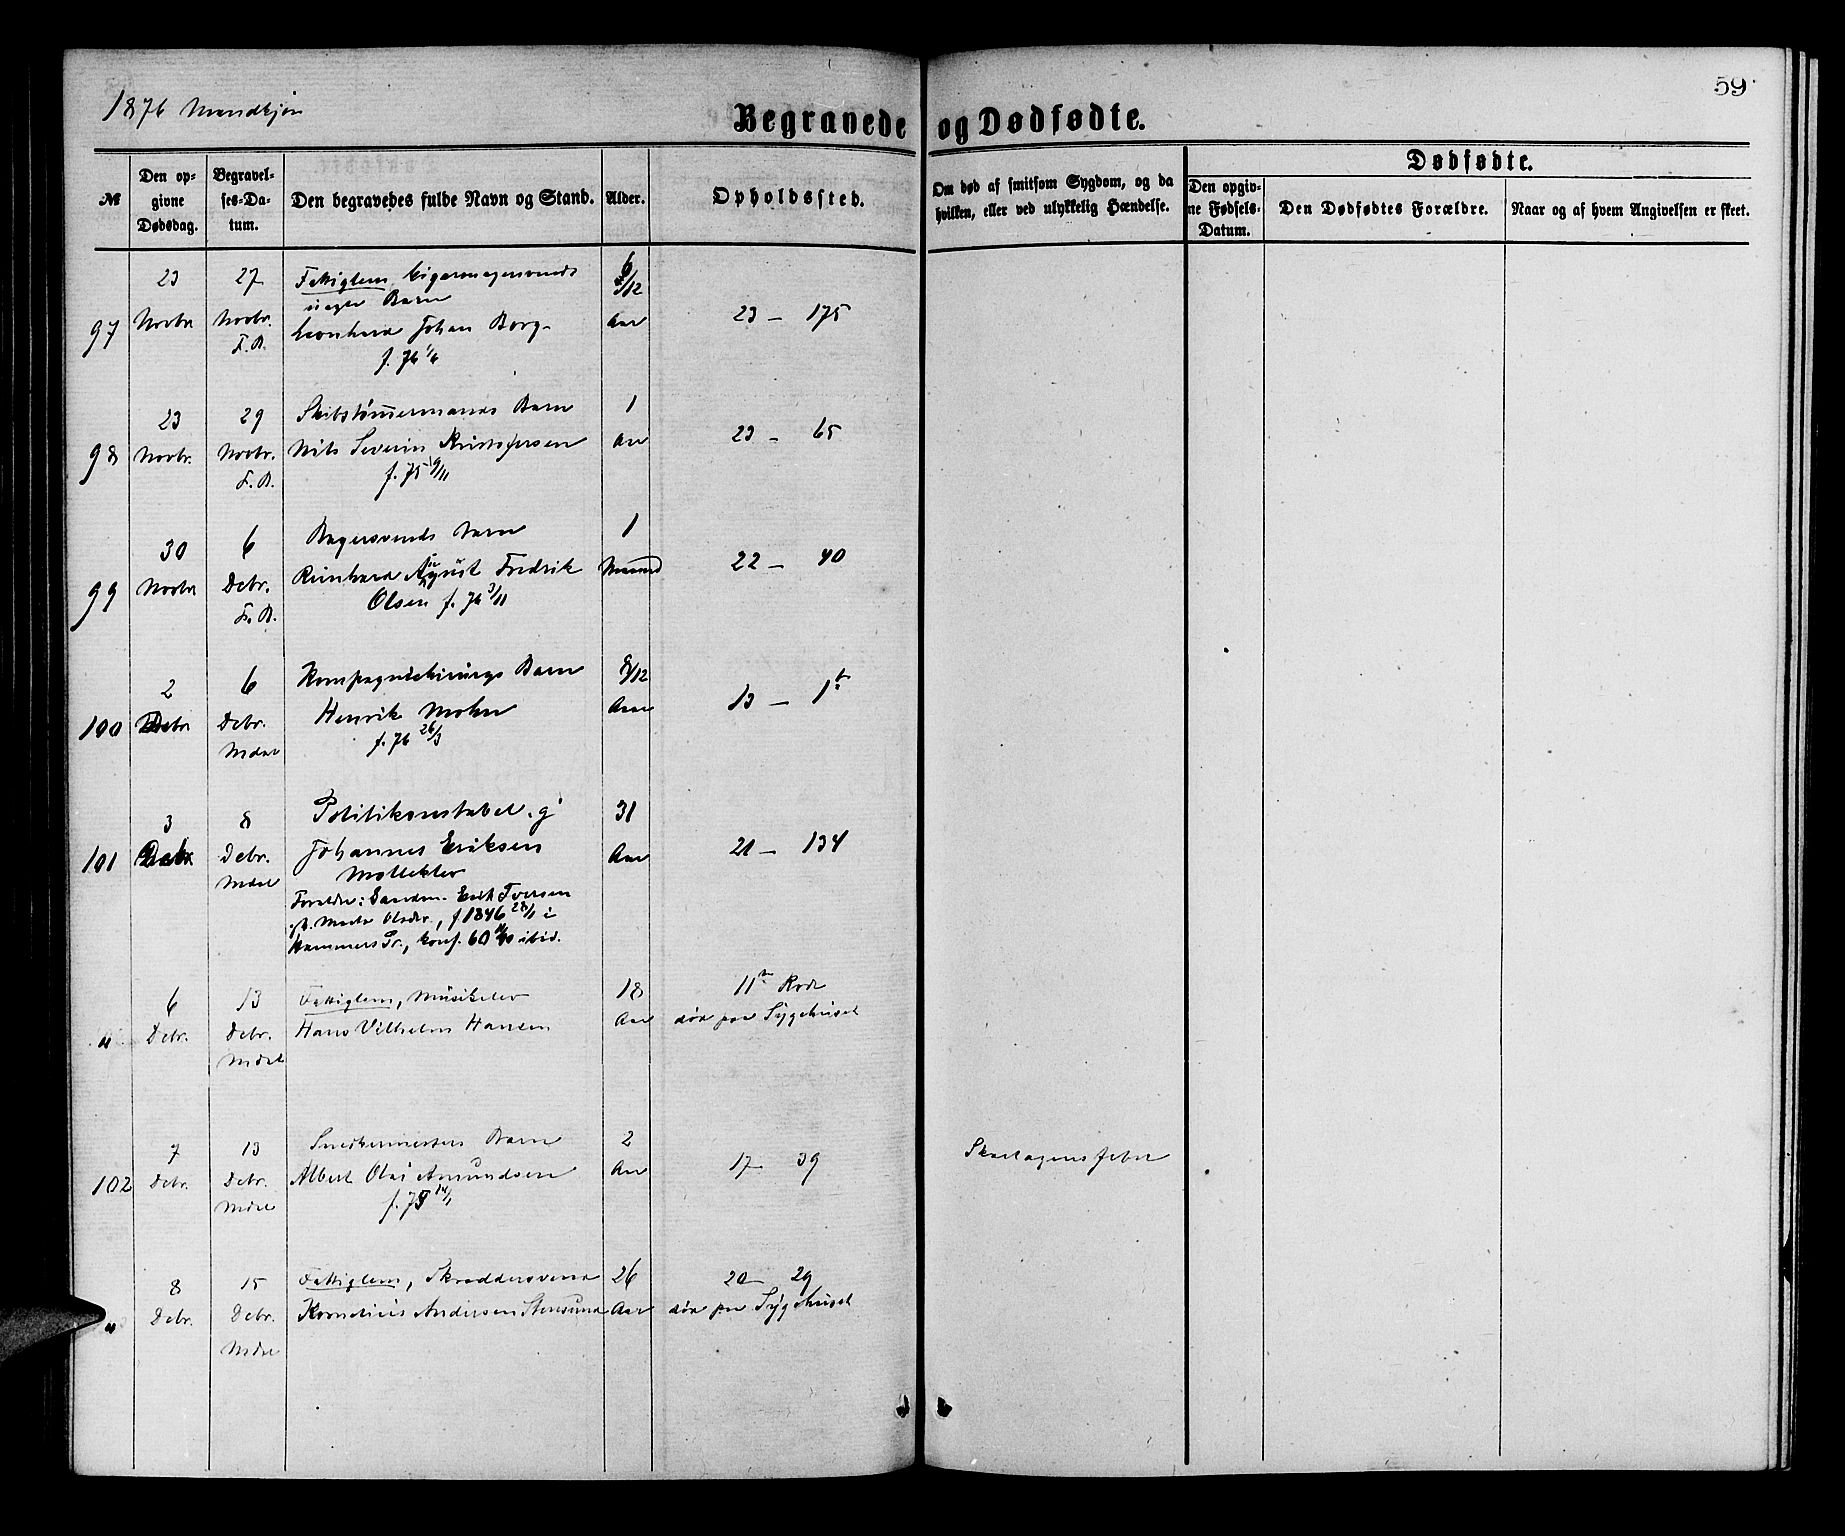 1876 Mandkjøn
Begravede og Dødfødte.
59
№
Den opgivne Dødsdag.
Begravelses-Datum.
Den begravedes fulde Navn og Stand.
Alder.
Opholdssted.
Om død af smitsom Sygdom, og da hvilken, eller ved ulykkelig Hændelse.
Dødfødte.
Den opgivne Fødsels-Datum.
Den Dødfødtes Forældre.
Naar og af hvem Angivelsen er skeet.
97
23 Novbr
27 Novbr. F.B.
Fattiglem, Cigarmagersvends
uægte Barn
Leonhard Johan Borg
f. 76 1/6
6/12 Aar
23 — 175
98
23 Novbr.
29 Novbr. F.B.
Skibstømmermands Barn
Nils Severin Kristofersen
f. 75 19/11
1 Aar
23 — 65
99
30 Novbr
6 Debr. F.B.
Bagersvends Barn
Reinhard August Fredrik
Olsen f. 76 3/11
1 Maaned
22 — 40
100
2 Debr
6 Debr. Mdal
Kompagnichirurgs Barn
Henrik Mohn
f. 76 26/3
8/12 Aar
13 — 1
101
3 Debr
8 Debr. Mdal
Politikonstabel. g
Johannes Eriksen
Mølleklev
Foreldre: Gaardm. Erik Iversen
og Marta Olsdr., f 1846 28/1 i
Hammers Pr., konf. 60 ibid.
31 Aar
21 — 134
"
6 Debr.
13 Debr. Mdal
Fattiglem, Musikelev
Hans Vilhelm Hansen
18 Aar
11te Rode
død paa Sygehuset
102
7 Debr.
13 Debr. Mdal
Snedkermesters Barn
Albert Olai Amundsen
f. 75 14/1
2 Aar
17 — 39
Skarlagensfeber
"
8 Debr.
15 Debr. Mdal
Fattiglem, Skræddersvend
Kornelius Andersen Stensund
26 Aar
20 — 29
død paa Sygehuset